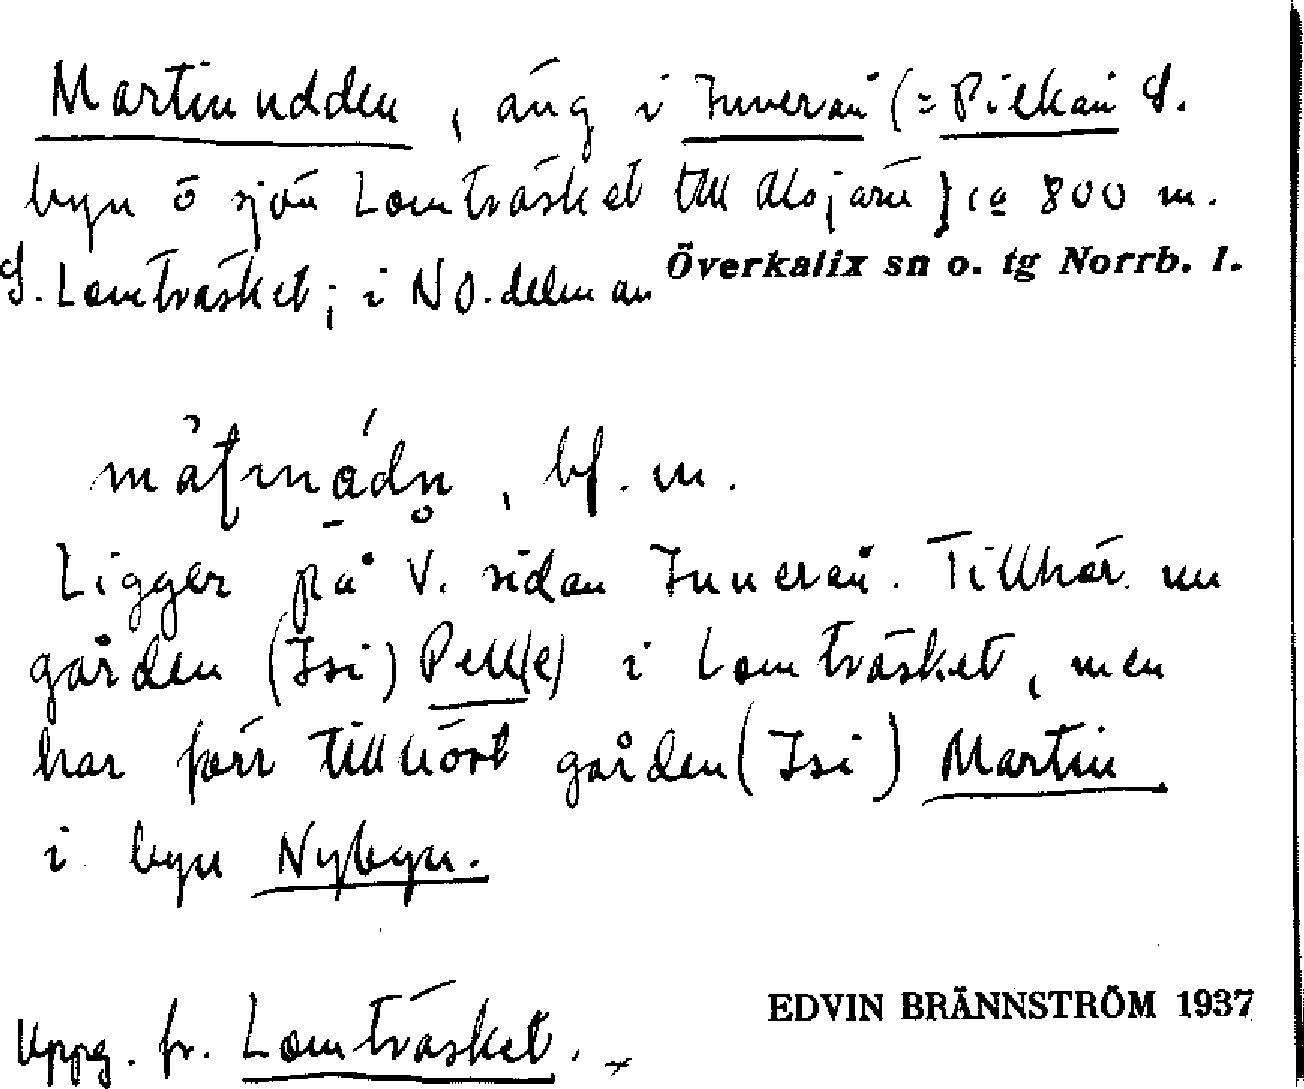 Martinudden, äng i Innerån (=Pilkån S.
byn o sjön Lomträsket till Alsjärn) ca 800 m.
S. Lomträsket; i NO. delen av
Överkalix sn o. tg Norrb. l.
, bf. m.
Ligger på V. sidan Innerån. Tillhör nu
gården (Isi) Pell(e) i Lomträsket, men
har förr tillhört gården (Isi) Martin
i byn Nybyn.
Uppg. fr. Lomträsket.
EDVIN BRÄNNSTRÖM 1937